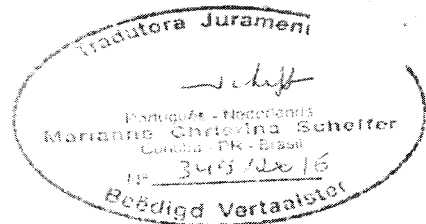 Tradutora Jurament
Português - Nederlands
Marianne Christina Scheffer
Curitiba - PR - Brasil
Nº
Beëdigd Vertaalster